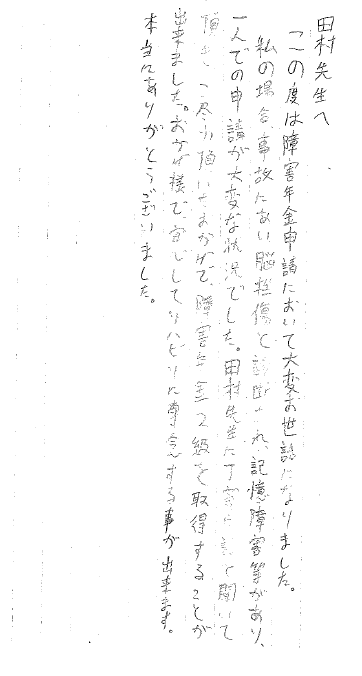 田村先生へ
この度は障害年金申請において大変お世話になりました。
私の場合、事故にあい脳挫傷と診断され、記憶障害等があり、
一人での申請が大変な状況でした。田村先生に丁寧に話を聞いて
頂き、ご尽力頂いたおかげで、障害年金2級を取得することが
出来ました。おかげ様で、安心してリハビリに専念する事が出来ます。
本当にありがとうございました。